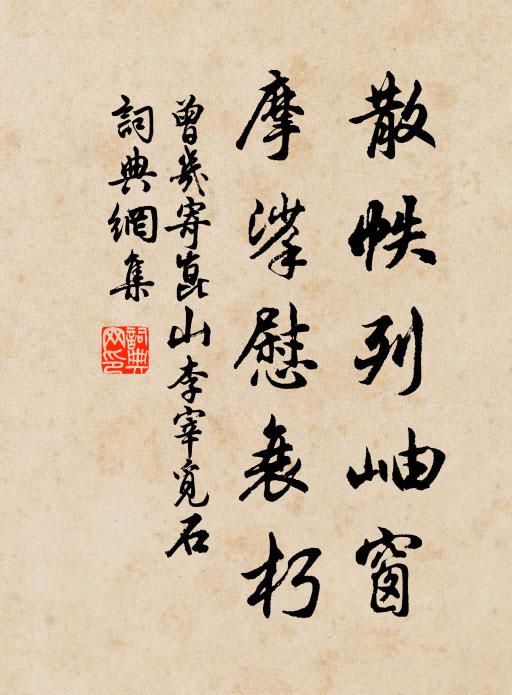 散帙列岫窗
摩挲慰衰朽
曾幾寄崑山李宰覓石
詞典網集
詞典網印